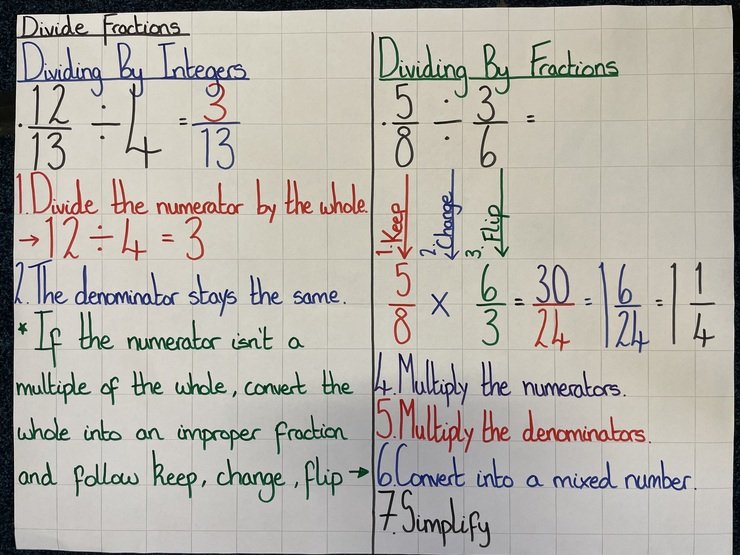 Divide Fractions
Dividing By Integers
12/13 ÷ 4 = 3/13
1. Divide the numerator by the whole.
→ 12 ÷ 4 = 3
2. The denominator stays the same.
* If the numerator isn't a
multiple of the whole, convert the
whole into an improper fraction
and follow keep, change, flip →
Dividing By Fractions
5/8 ÷ 3/6 =
1. Keep
2. Change
3. Flip
5/8 x 6/3 = 30/24 = 1 6/24 = 1 1/4
4. Multiply the numerators.
5. Multiply the denominators.
6. Convert into a mixed number.
7. Simplify